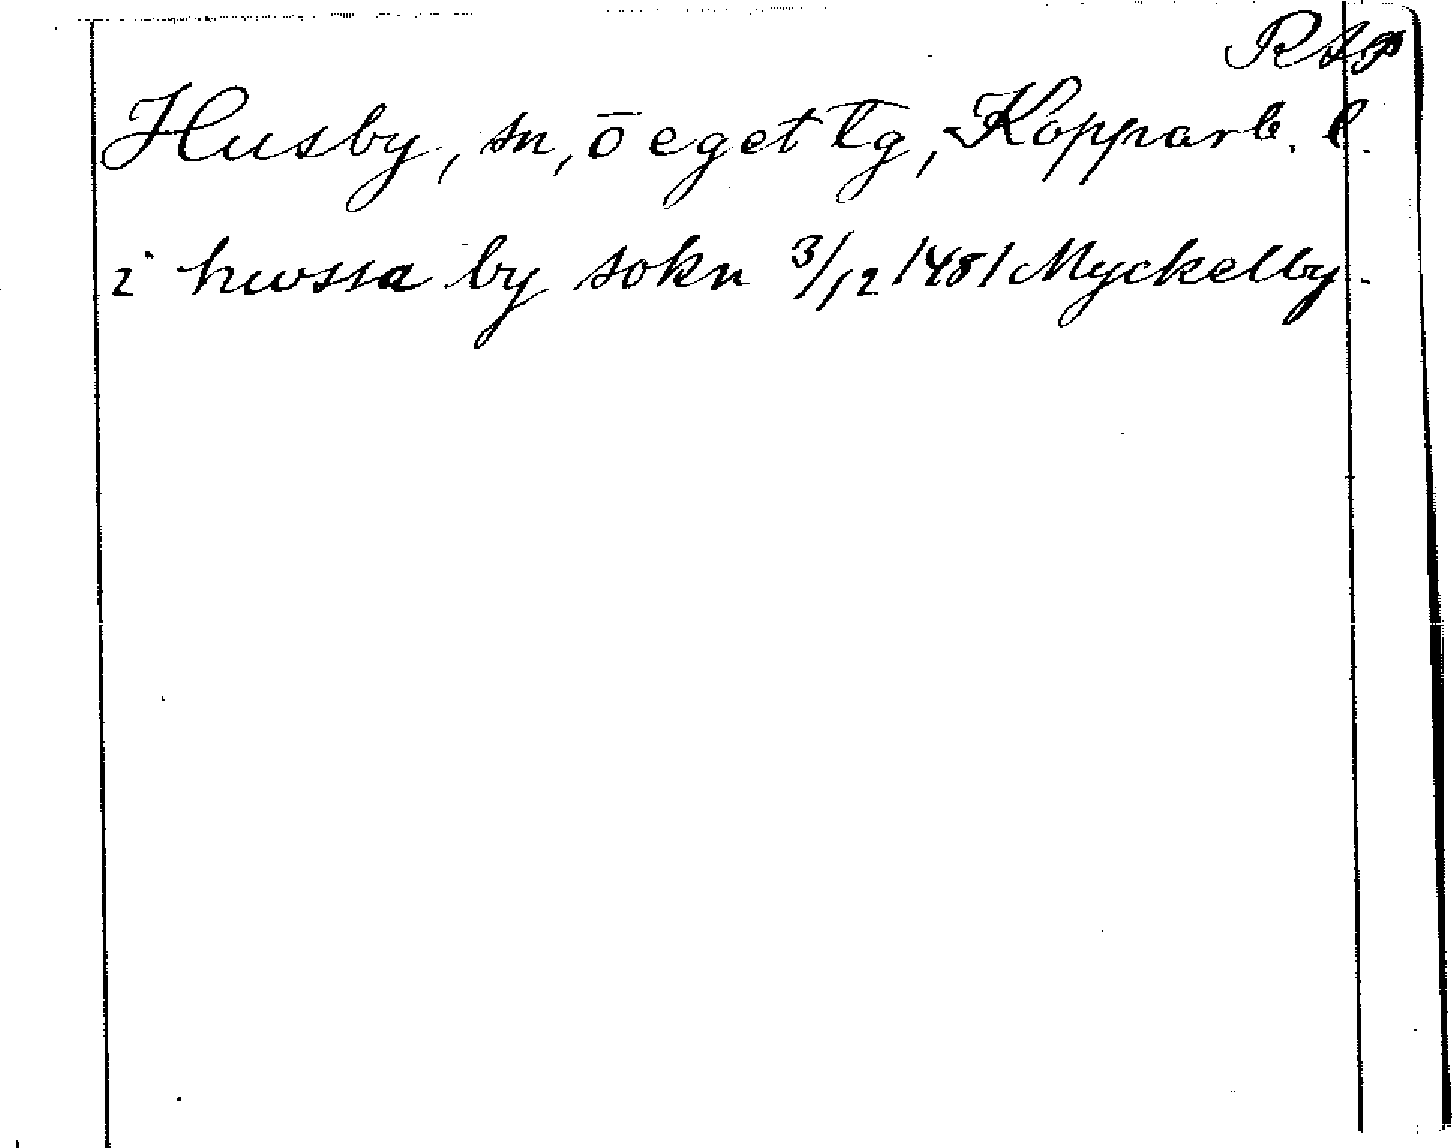 RAP
Husby, sn, o eget tg, Kopparb. l.
i hwssa by sokn 3/12 1481 Myckelby.